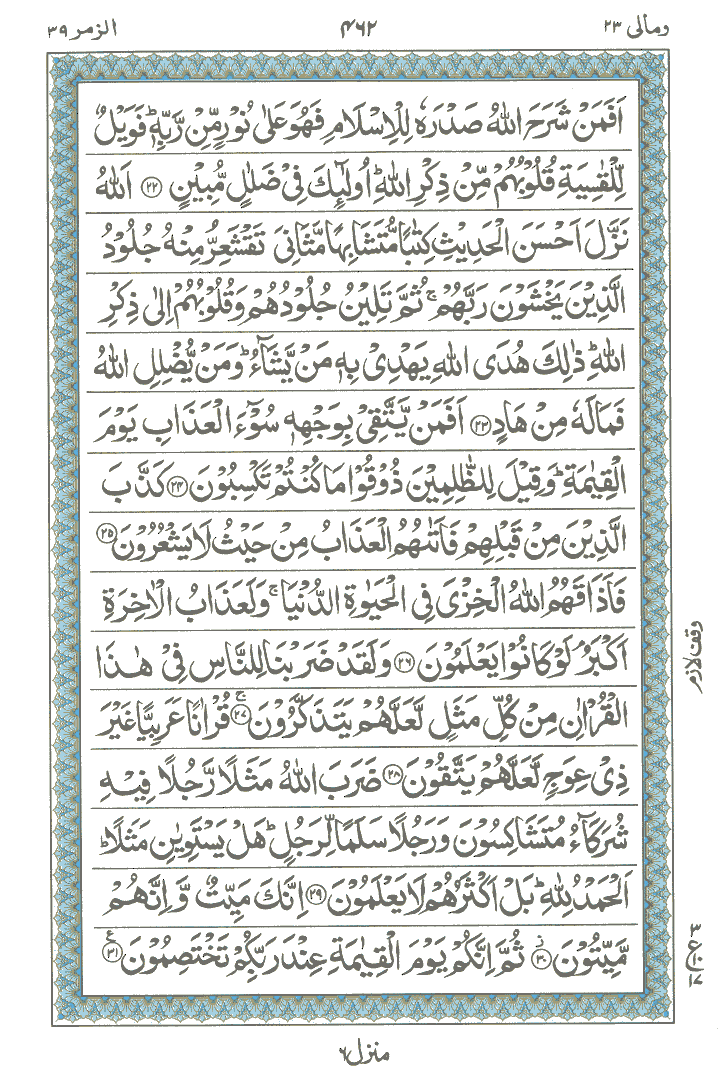 ومالی ۲۳
۴۶۲
الزمر ۳۹
اَفَمَنْ شَرَحَ اللّٰهُ صَدْرَهٗ لِلْاِسْلَامِ فَهُوَ عَلٰى نُوْرٍ مِّنْ رَّبِّهٖ ؕ فَوَيْلٌ
لِّلْقٰسِيَةِ قُلُوْبُهُمْ مِّنْ ذِكْرِ اللّٰهِ ؕ اُولٰٓئِكَ فِىْ ضَلٰلٍ مُّبِيْنٍ ﴿۲۲﴾ اَللّٰهُ
نَزَّلَ اَحْسَنَ الْحَدِيْثِ كِتٰبًا مُّتَشَابِهًا مَّثَانِىَ تَقْشَعِرُّ مِنْهُ جُلُوْدُ
الَّذِيْنَ يَخْشَوْنَ رَبَّهُمْ ۚ ثُمَّ تَلِيْنُ جُلُوْدُهُمْ وَقُلُوْبُهُمْ اِلٰى ذِكْرِ
اللّٰهِ ؕ ذٰلِكَ هُدَى اللّٰهِ يَهْدِىْ بِهٖ مَنْ يَّشَآءُ ؕ وَمَنْ يُّضْلِلِ اللّٰهُ
فَمَا لَهٗ مِنْ هَادٍ ﴿۲۳﴾ اَفَمَنْ يَّتَّقِىْ بِوَجْهِهٖ سُوْٓءَ الْعَذَابِ يَوْمَ
الْقِيٰمَةِ ؕ وَقِيْلَ لِلظّٰلِمِيْنَ ذُوْقُوْا مَا كُنْتُمْ تَكْسِبُوْنَ ﴿۲۴﴾ كَذَّبَ
الَّذِيْنَ مِنْ قَبْلِهِمْ فَاَتٰٮهُمُ الْعَذَابُ مِنْ حَيْثُ لَا يَشْعُرُوْنَ ﴿۲۵﴾
فَاَذَاقَهُمُ اللّٰهُ الْخِزْىَ فِى الْحَيٰوةِ الدُّنْيَا ۚ وَلَعَذَابُ الْاٰخِرَةِ
اَكْبَرُ ۘ لَوْ كَانُوْا يَعْلَمُوْنَ ﴿۲۶﴾ وَلَقَدْ ضَرَبْنَا لِلنَّاسِ فِىْ هٰذَا
الْقُرْاٰنِ مِنْ كُلِّ مَثَلٍ لَّعَلَّهُمْ يَتَذَكَّرُوْنَ ۚ ﴿۲۷﴾ قُرْاٰنًا عَرَبِيًّا غَيْرَ
ذِىْ عِوَجٍ لَّعَلَّهُمْ يَتَّقُوْنَ ﴿۲۸﴾ ضَرَبَ اللّٰهُ مَثَلًا رَّجُلًا فِيْهِ
شُرَكَآءُ مُتَشَاكِسُوْنَ وَرَجُلًا سَلَمًا لِّرَجُلٍ ؕ هَلْ يَسْتَوِيٰنِ مَثَلًا ؕ
اَلْحَمْدُ لِلّٰهِ ؕ بَلْ اَكْثَرُهُمْ لَا يَعْلَمُوْنَ ﴿۲۹﴾ اِنَّكَ مَيِّتٌ وَّاِنَّهُمْ
مَّيِّتُوْنَ ؗ ﴿۳۰﴾ ثُمَّ اِنَّكُمْ يَوْمَ الْقِيٰمَةِ عِنْدَ رَبِّكُمْ تَخْتَصِمُوْنَ ﴿۳۱﴾ ع
وقف لازم
۳
ع
۱۷
منزل ۶